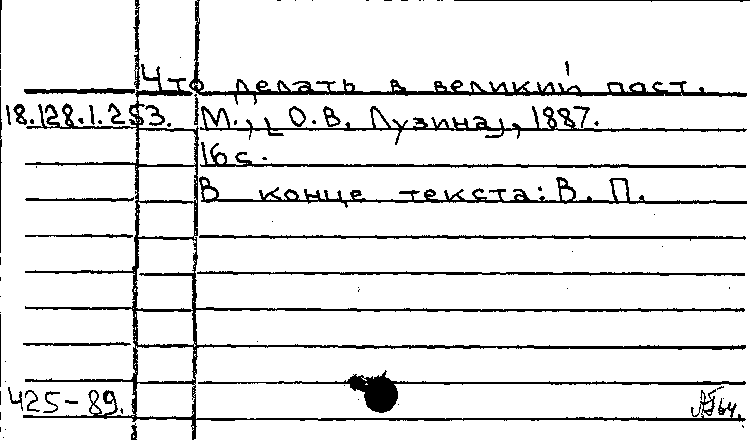 Что делать в великий пост.
18.128.1.253. М., [О.В. Лузина], 1887.
16 с.
В конце текста: В. П.
425-89.